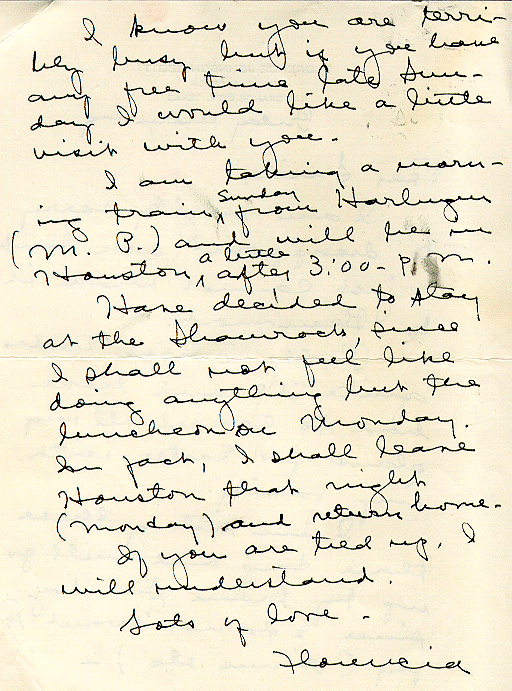 I know you are terri-
bly busy but if you have
any free time late Sun-
day I would like a little
visit with you.
I am taking a morn-
ing train, Sunday from Harlingen
(M. P.) and will be in
Houston, a little after 3:00 - P. M.
Have decided to stay
at the Shamrock, since
I shall not feel like
doing anything but the
luncheon on Monday.
In fact, I shall leave
Houston that night
(Monday) and return home.
If you are tied up, I
will understand.
Lots of love -
Florencia